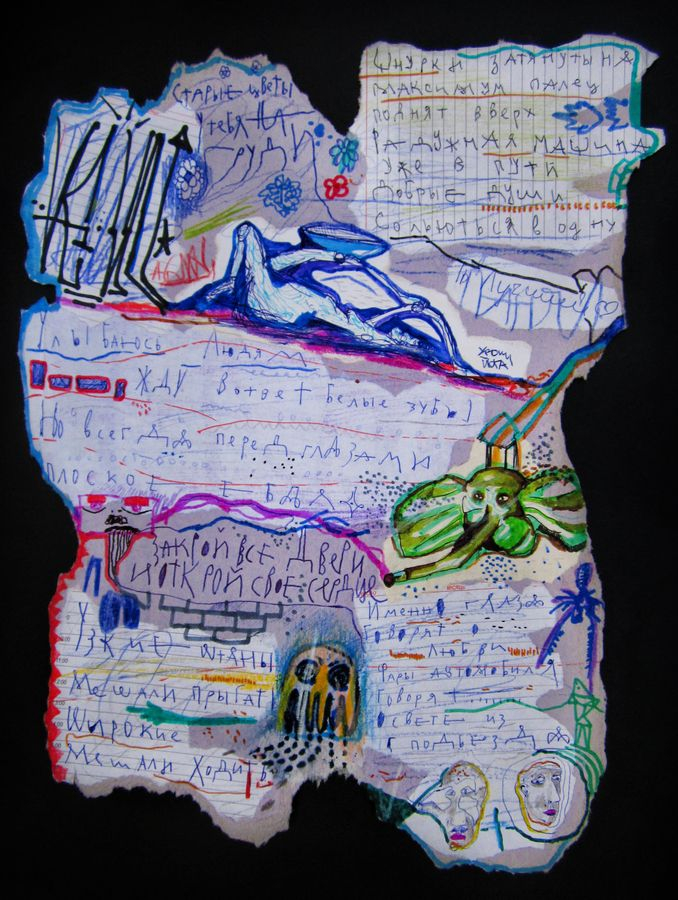 Старые цветы
у тебя на
груди
Шнурки затянуты на
максимум палец
поднят вверх
Радужная машина
уже в пути
Добрые души
Сольються в одну
Улыбаюсь Людям
Жду в ответ белые зубы
Но всегда перед глазами
плоское
Закрой все двери
и открой свое сердце
Узкие штаны
Мешали прыгат
Широкие
Мешали Ходить
Именно глаза
говорят о
любви
Фары автомобиля
говорят
о свете из
подъезда